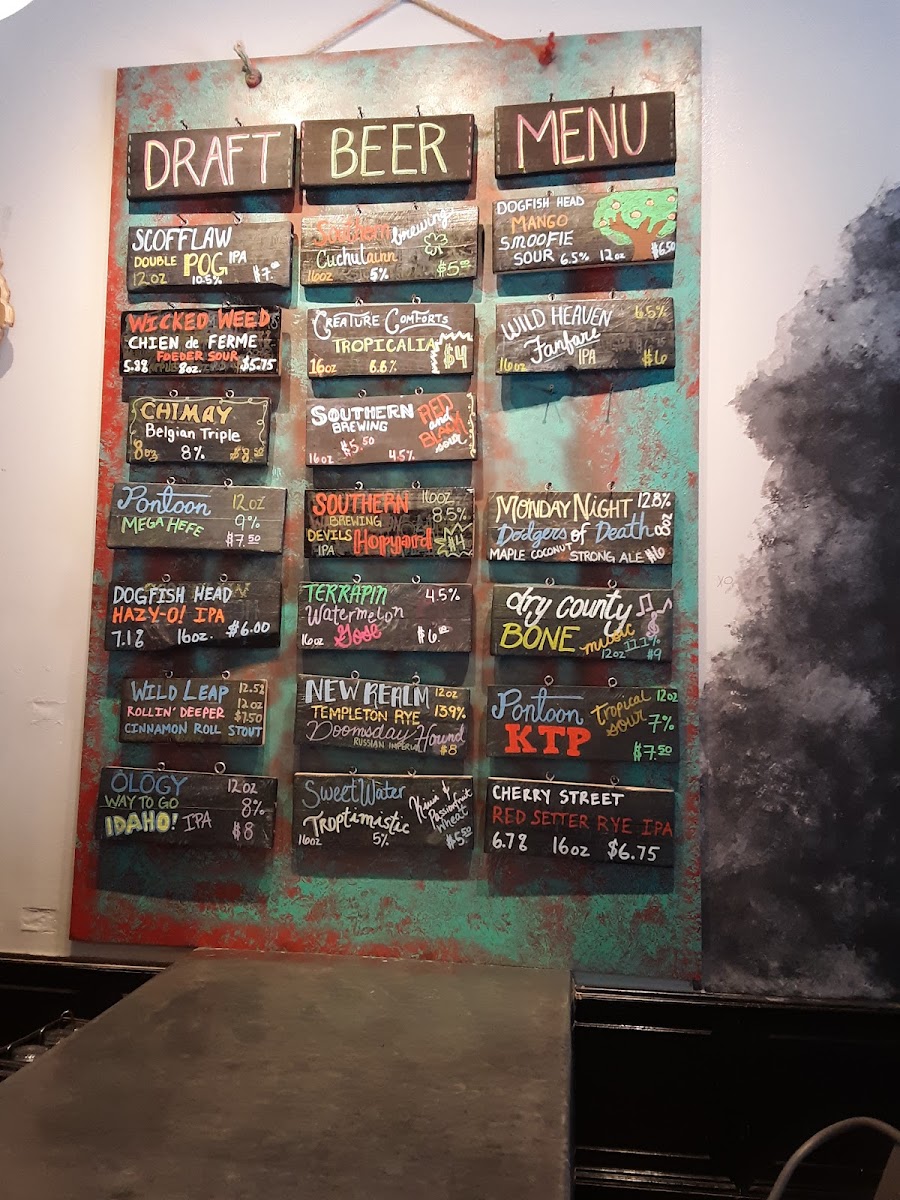 DRAFT
BEER
MENU
SCOFFLAW
DOUBLE POG IPA
12oz 10.5% $7.00
WICKED WEED
CHIEN de FERME
FOEDER SOUR
5.8% 8oz. $5.75
CHIMAY
Belgian Triple
8oz 8%
Pontoon 12oz
MEGA HEFE 9%
$7.50
DOGFISH HEAD
HAZY-O! IPA
7.1% 16oz. $6.00
WILD LEAP 12.5%
ROLLIN' DEEPER 12oz
$7.50
CINNAMON ROLL STOUT
OLOGY 12oz
WAY TO GO 8%
IDAHO! IPA $8
Southern brewing
Cuchulainn
16oz 5% $5.00
CREATURE COMFORTS
TROPICALIA $4
16oz 6.6%
SOUTHERN
BREWING
RED and BLACK sour
$5.50
16oz 4.5%
SOUTHERN 16oz
BREWING 8.5%
DEVILS Hopyard
IPA $4
TERRAPIN 4.5%
Watermelon
Gose
16oz $6.00
NEW REALM 12oz
TEMPLETON RYE 13.9%
Doomsday Hound
RUSSIAN IMPERIAL $8
SweetWater
Kiwi & Passionfruit Wheat
Troptimistic
16oz 5% $5.50
DOGFISH HEAD
MANGO
SMOOFIE
SOUR 6.5% 12oz $6.50
WILD HEAVEN 6.5%
Fanfare
IPA
16oz $6
MONDAY NIGHT 12.8%
Dodgers of Death 8oz
MAPLE COCONUT STRONG ALE $6
dry county
BONE music
12oz 11.1%
$9
Pontoon tropical sour 12oz
KTP 7%
$7.50
CHERRY STREET
RED SETTER RYE IPA
6.7% 16oz $6.75